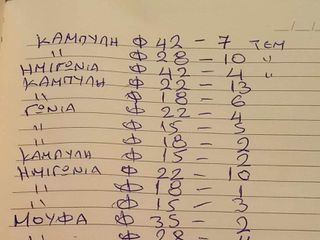 ΚΑΜΠΥΛΗ Φ 42 - 7 ΤΕΜ
'' Φ 28 - 10 ''
ΗΜΙΓΩΝΙΑ Φ 42 - 4 ''
ΚΑΜΠΥΛΗ Φ 22 - 13
'' Φ 18 - 6
ΓΩΝΙΑ Φ 22 - 4
'' Φ 15 - 5
'' Φ 18 - 2
ΚΑΜΠΥΛΗ Φ 15 - 2
ΗΜΙΓΩΝΙΑ Φ 22 - 10
'' Φ 18 - 1
'' Φ 15 - 3
ΜΟΥΦΑ Φ 35 - 2
'' Φ 28